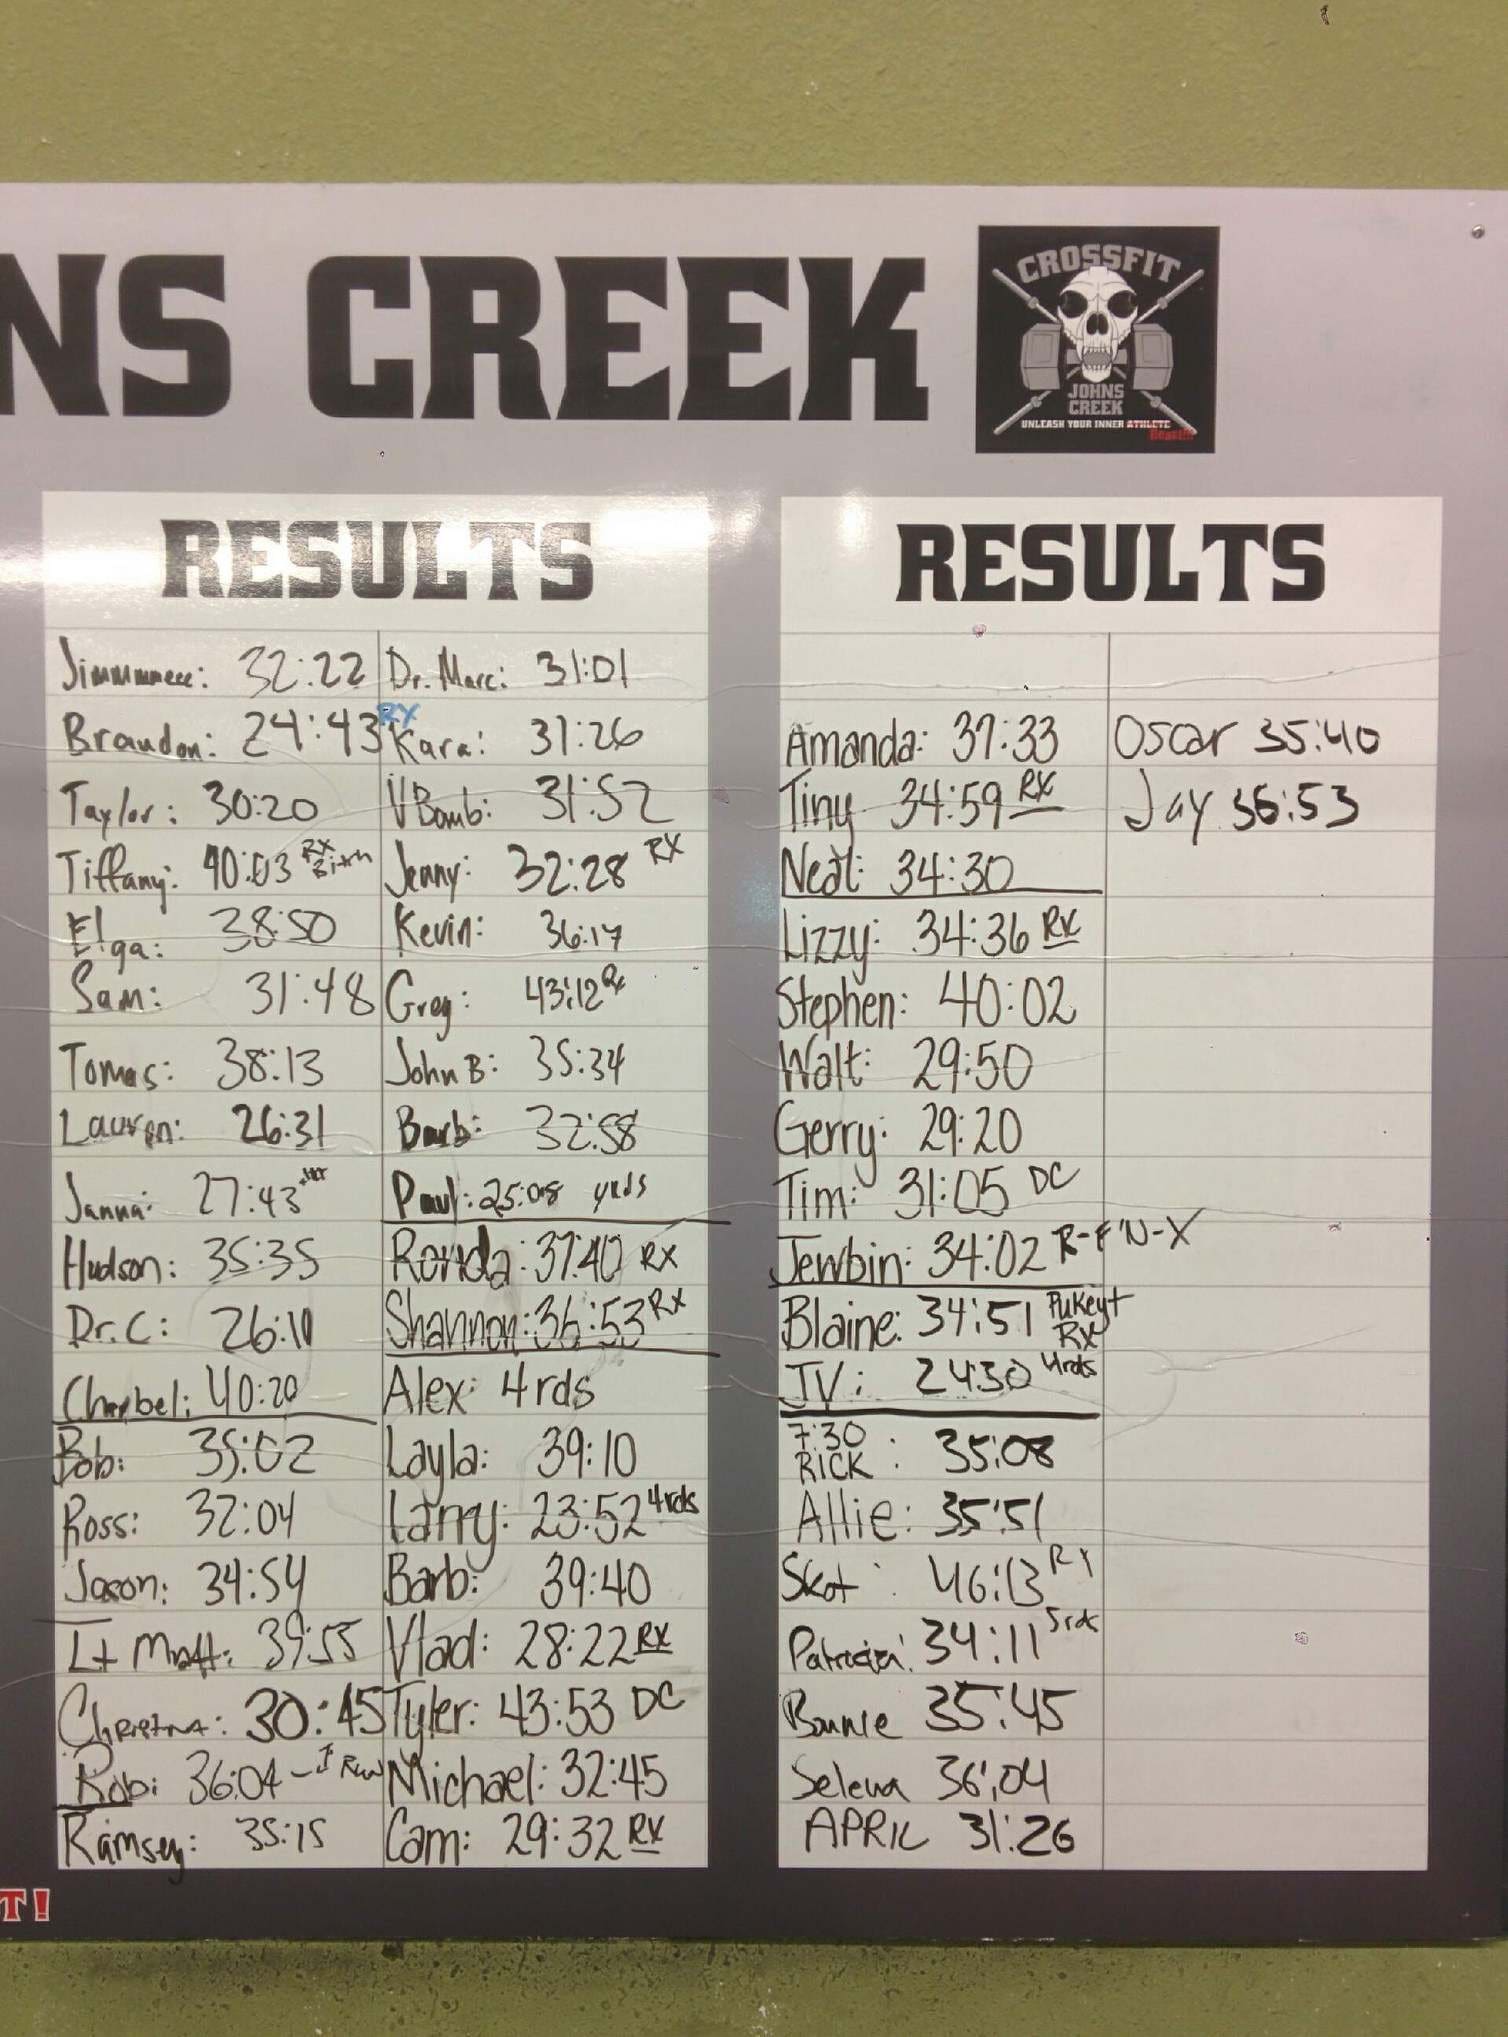 NS CREEK
CROSSFIT
JOHNS
CREEK
UNLEASH YOUR INNER ATHLETE
Beast!!!
RESULTS
Jimmmneee: 32:22
Brandon: 24:43 RX
Taylor: 30:20
Tiffany: 40:03 RX Bitch
Elga: 38:50
Sam: 31:48
Tomas: 38:13
Lauren: 26:31
Janna: 27:43
Hudson: 35:35
Dr. C: 26:10
Charbel: 40:20
Bob: 35:02
Ross: 32:04
Jason: 34:54
Lt Matt: 39:55
Christina: 30:45
Rob: 36:04 - I Run
Ramsey: 35:15
Dr. Marc: 31:01
Kara: 31:26
VBomb: 31:52
Jenny: 32:28 RX
Kevin: 36:17
Greg: 43:12 Rx
John B: 35:34
Barb: 32:58
Paul: 25:08
Ronda: 37:40 RX
Shannon: 36:53 RX
Alex: 4 rds
Layla: 39:10
Larry: 23:52 4rds
Barb: 39:40
Vlad: 28:22 RX
Tyler: 43:53 DC
Michael: 32:45
Cam: 29:32 RX
RESULTS
Amanda: 37:33
Tiny 34:59 RX
Neal: 34:30
Lizzy: 34:36 RX
Stephen: 40:02
Walt: 29:50
Gerry: 29:20
Tim: 31:05 DC
Jewbin: 34:02 R-F'N-X
Blaine: 34:51 Pukey+ RX
JV: 24:30 4rds
7:30
RICK : 35:08
Allie: 35:51
Skot : 46:13 RX
Patricia: 34:11 5rds
Bonnie 35:45
Selena 36:04
APRIL 31:26
Oscar 35:40
Jay 36:53
T!